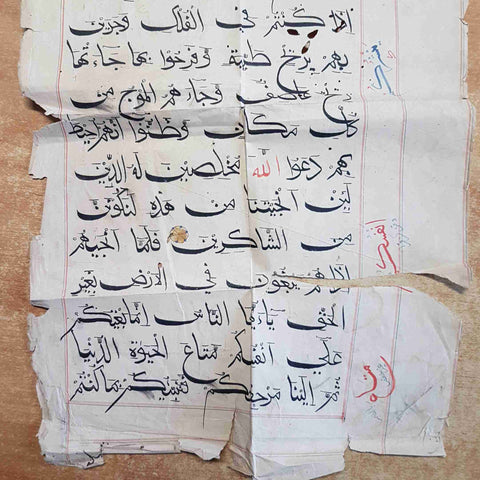 اذا كنتم في الفلك وجرين
بهم بريح طيبة وفرحوا بها جاءتها
ريح عاصف وجاءهم الموج من
كل مكان وظنوا انهم احيط
بهم دعوا الله مخلصين له الدين
لئن انجيتنا من هذه لنكونن
من الشاكرين فلما انجيهم
اذا هم يبغون في الارض بغير
الحق ياءيها الناس انما بغيكم
على انفسكم متاع الحيوة الدنيا
ثم الينا مرجعكم فننبئكم بما كنتم